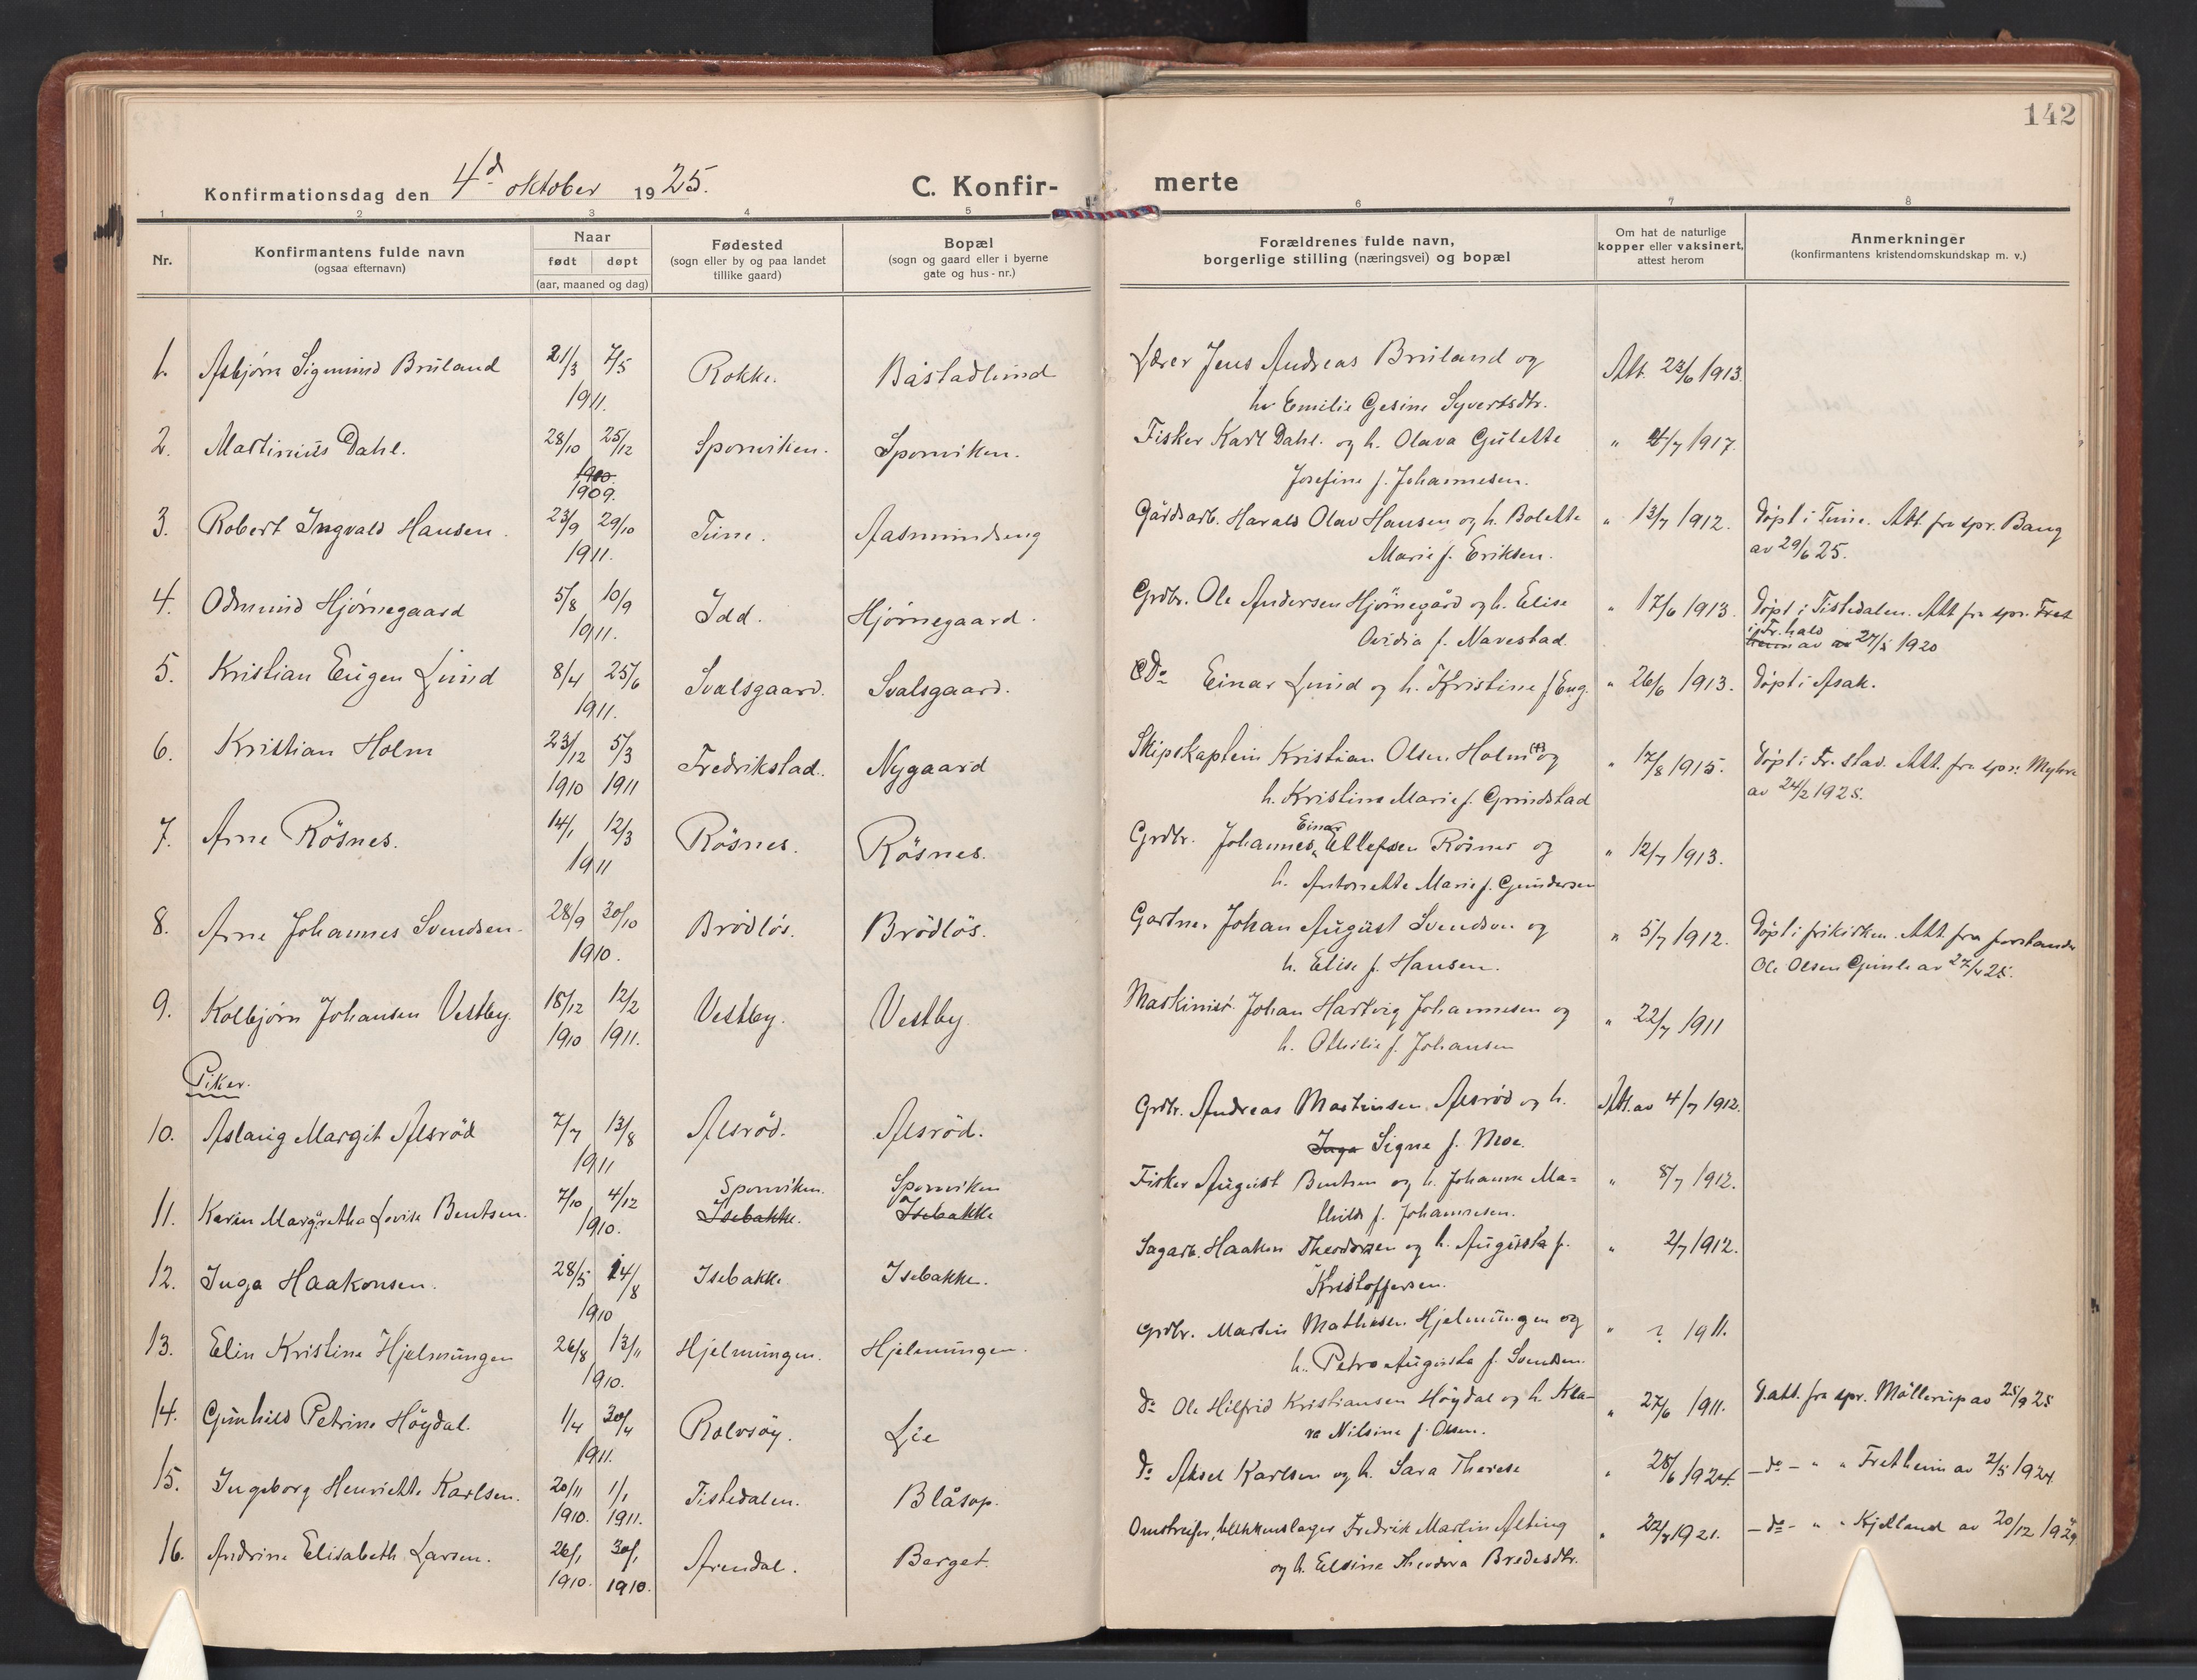 142
Konfirmationsdag den 4d oktober 1925.
C. Konfir-merte
1 2 3 4 5 6 7 8
Nr.
Konfirmantens fulde navn
(ogsaa efternavn)
Naar
født døpt
(aar, maaned og dag)
Fødested
(sogn eller by og paa landet
tillike gaard)
Bopæl
(sogn og gaard eller i byerne
gate og hus-nr.)
Forældrenes fulde navn,
borgerlige stilling (næringsvei) og bopæl
Om hat de naturlige
kopper eller vaksinert,
attest herom
Anmerkninger
(konfirmantens kristendomskundskap m. v.)
1. Asbjørn Sigmund Bruland 21/3 7/5 Rokke. Båstadlund Lærer Jens Andreas Bruland og Att. 23/6 1913.
1911. hu Emilie Gesine Syvertsdtr.
2. Martinius Dahl. 28/10 25/12 Sponviken. Sponviken. Fisker Karl Dahl. og h. Olava Gulette " 4/7 1917.
1910. Josefine f. Johannesen.
1909.
3. Robert Ingvald Hansen. 23/9 29/10 Tune. Aasmundseng Gårdsarb. Harald Olav Hansen og h. Bolette " 13/7 1912. Døpt i Tune. Att fra spr. Bang
1911. Marie f. Eriksen. av 29/6 25.
4. Odmund Hjørnegaard 5/8 10/9 Idd. Hjørnegaard. Grdbr. Ole Andersen Hjørnegård og h. Elise " 17/6 1913. Døpt i Tistedalen. Att fra spr. Fret
1911. Ovidia f. Navestad. i Fr.hald
heim av 27/5 1920
5. Kristian Eugen Lund 8/4 25/6 Svalsgaard. Svalsgaard. Do Einar Lund og h. Kristine f Eng. " 26/6 1913. Døpt i Asak.
1911.
6. Kristian Holm 23/12 5/3 Fredrikstad. Nygaard Skipskaptein Kristian Olsen Holm (+) og " 17/8 1915. Døpt i Fr. stad. Att. fra spr.
1910 1911 h. Kristine Marie f. Grindstad av 24/2 1925.
7. Arne Rösnes. 14/1 12/3 Rösnes. Rösnes. Grdbr. Johannes Einar Ellefsen Rösnes og " 12/7 1913.
1911 h. Antonette Marie f. Gundersen
8. Arne Johannes Svendsen. 28/9 30/10 Brödlös. Brödlös. Gartner Johan August Svendsen og " 5/7 1912. Døpt i frikirken. Att fra forstander
1910. h. Elise f. Hansen. Ole Olsen Gimle av 27/4 25.
9. Kolbjørn Johansen Vestby. 18/12 12/2 Vestby. Vestby Maskinist. Johan Hartvig Johannesen og " 22/7 1911
1910 1911. h. Othilie f. Johansen
Piker.
10. Aslaug Margit Alsröd 7/7 13/8 Alsröd. Alsröd. Grdbr. Andreas Martinsen Alsröd og h. Att. av 4/7 1912.
1911 Inga Signe f. Moe.
11. Karin Margretha Lovise Bentsen. 7/10 4/12 Sponviken. Isebakke. Sponviken Isebakke Fisker August Bentsen og h. Johanne Ma= " 8/7 1912.
1910. thilde f. Johannesen.
12. Inga Haakonsen. 28/5 14/8 Isebakke Isebakke. Sagarb. Haakon Theodorsen og h. Augusta f. " 2/7 1912.
1910 Kristoffersen.
13. Elin Kristine Hjelmungen 26/8 13/11 Hjelmungen. Hjelmungen. Grdbr. Martin Mathisen Hjelmungen og " ? 1911.
1910. h. Petra Augusta f. Svendsen.
14. Gunhild Petrine Höydal. 1/4 30/4 Rolvsöy. Lie do Ole Hilfrid Kristiansen Höydal og h. Kla- " 27/6 1911. D.att. fra spr. Möllerup av 25/9 25
1911. ra Nilsine f. Olsen.
15. Ingeborg Henriette Karlsen. 20/11 1/1 Tistedalen. Blåsop. do Aksel Karlsen og h. Sara Therese " 28/6 1924. - do - " " Fretheim av 2/5 1924
1910. 1911.
16. Andrine Elisabeth Larsen. 26/1 30/1 Arendal. Berget. Omstreifer, blikkenslager Fredrik Martin Alting " 22/7 1921. - do - " " Kjelland av 20/12 1924
1910. 1910. og h. Elsine Theodora Bredesdtr.